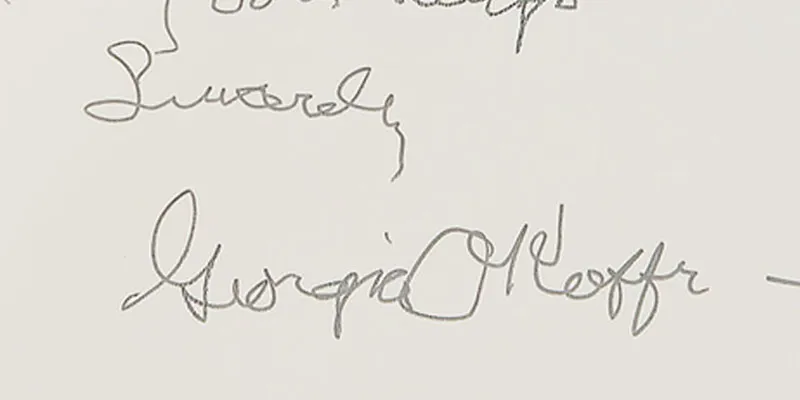 Sincerely
Georgia O'Keeffe